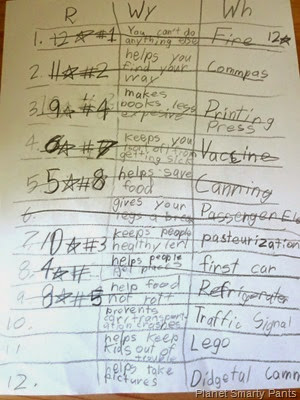 R Wy Wh
1. 12☆#1 You can't do anything else Fire 12☆
2. 11☆#2 helps you find your way Commpas
3. 9☆4 makes books less expesive Printing Press
4. keeps you from getting sick Vaccine
5. 5☆#8 helps save food Canning
6. gives your legs a break Passenger El
7. 10☆#3 keeps people healthy Pasteurization
8. 4☆ helps people get places first car
9. 8☆#5 help food not rott Refrigorator
10. prevents transportation crashes Traffic Signal
11. helps keep kids out of trouble Lego
12. helps take pictures Didgetal Camm
Planet Smarty Pants